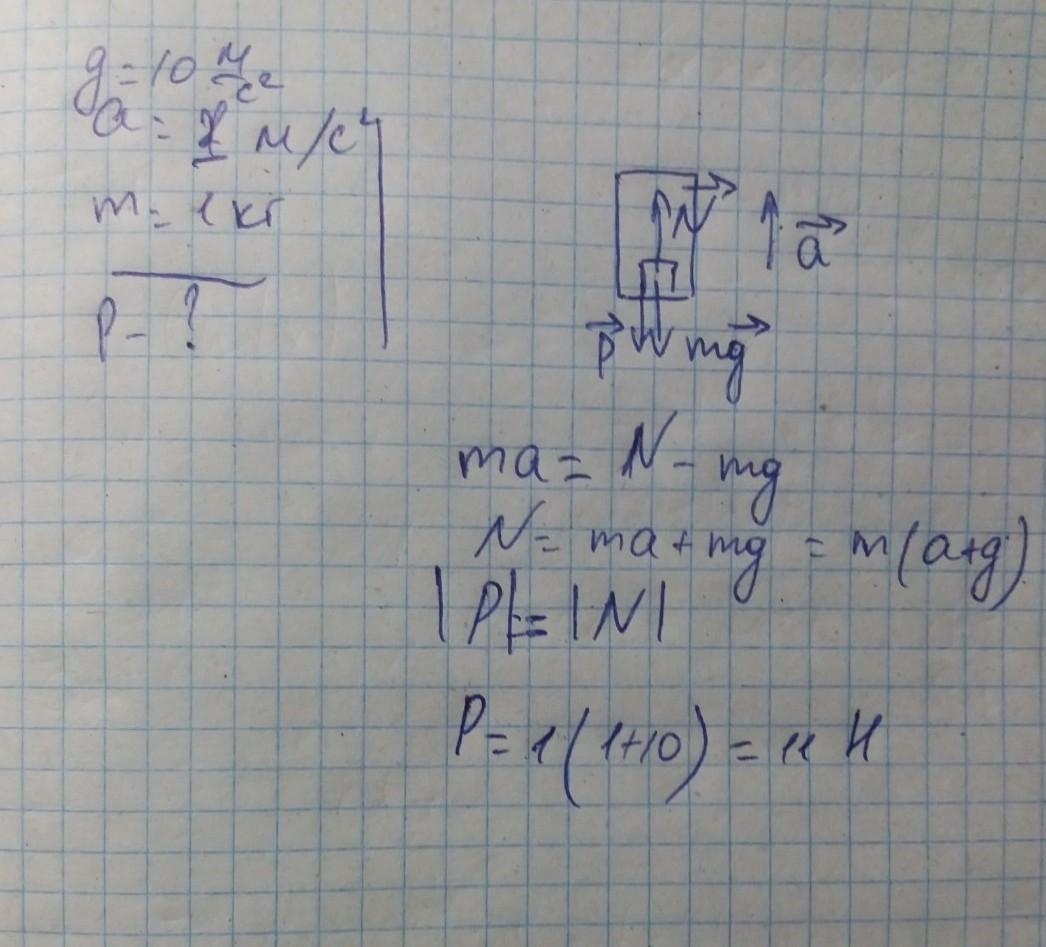 g = 10 м/с²
a = 1 м/с²
m = 1 кг
P - ?
N
a
P mg
ma = N - mg
N = ma + mg = m(a+g)
|P| = |N|
P = 1(1+10) = 11 Н